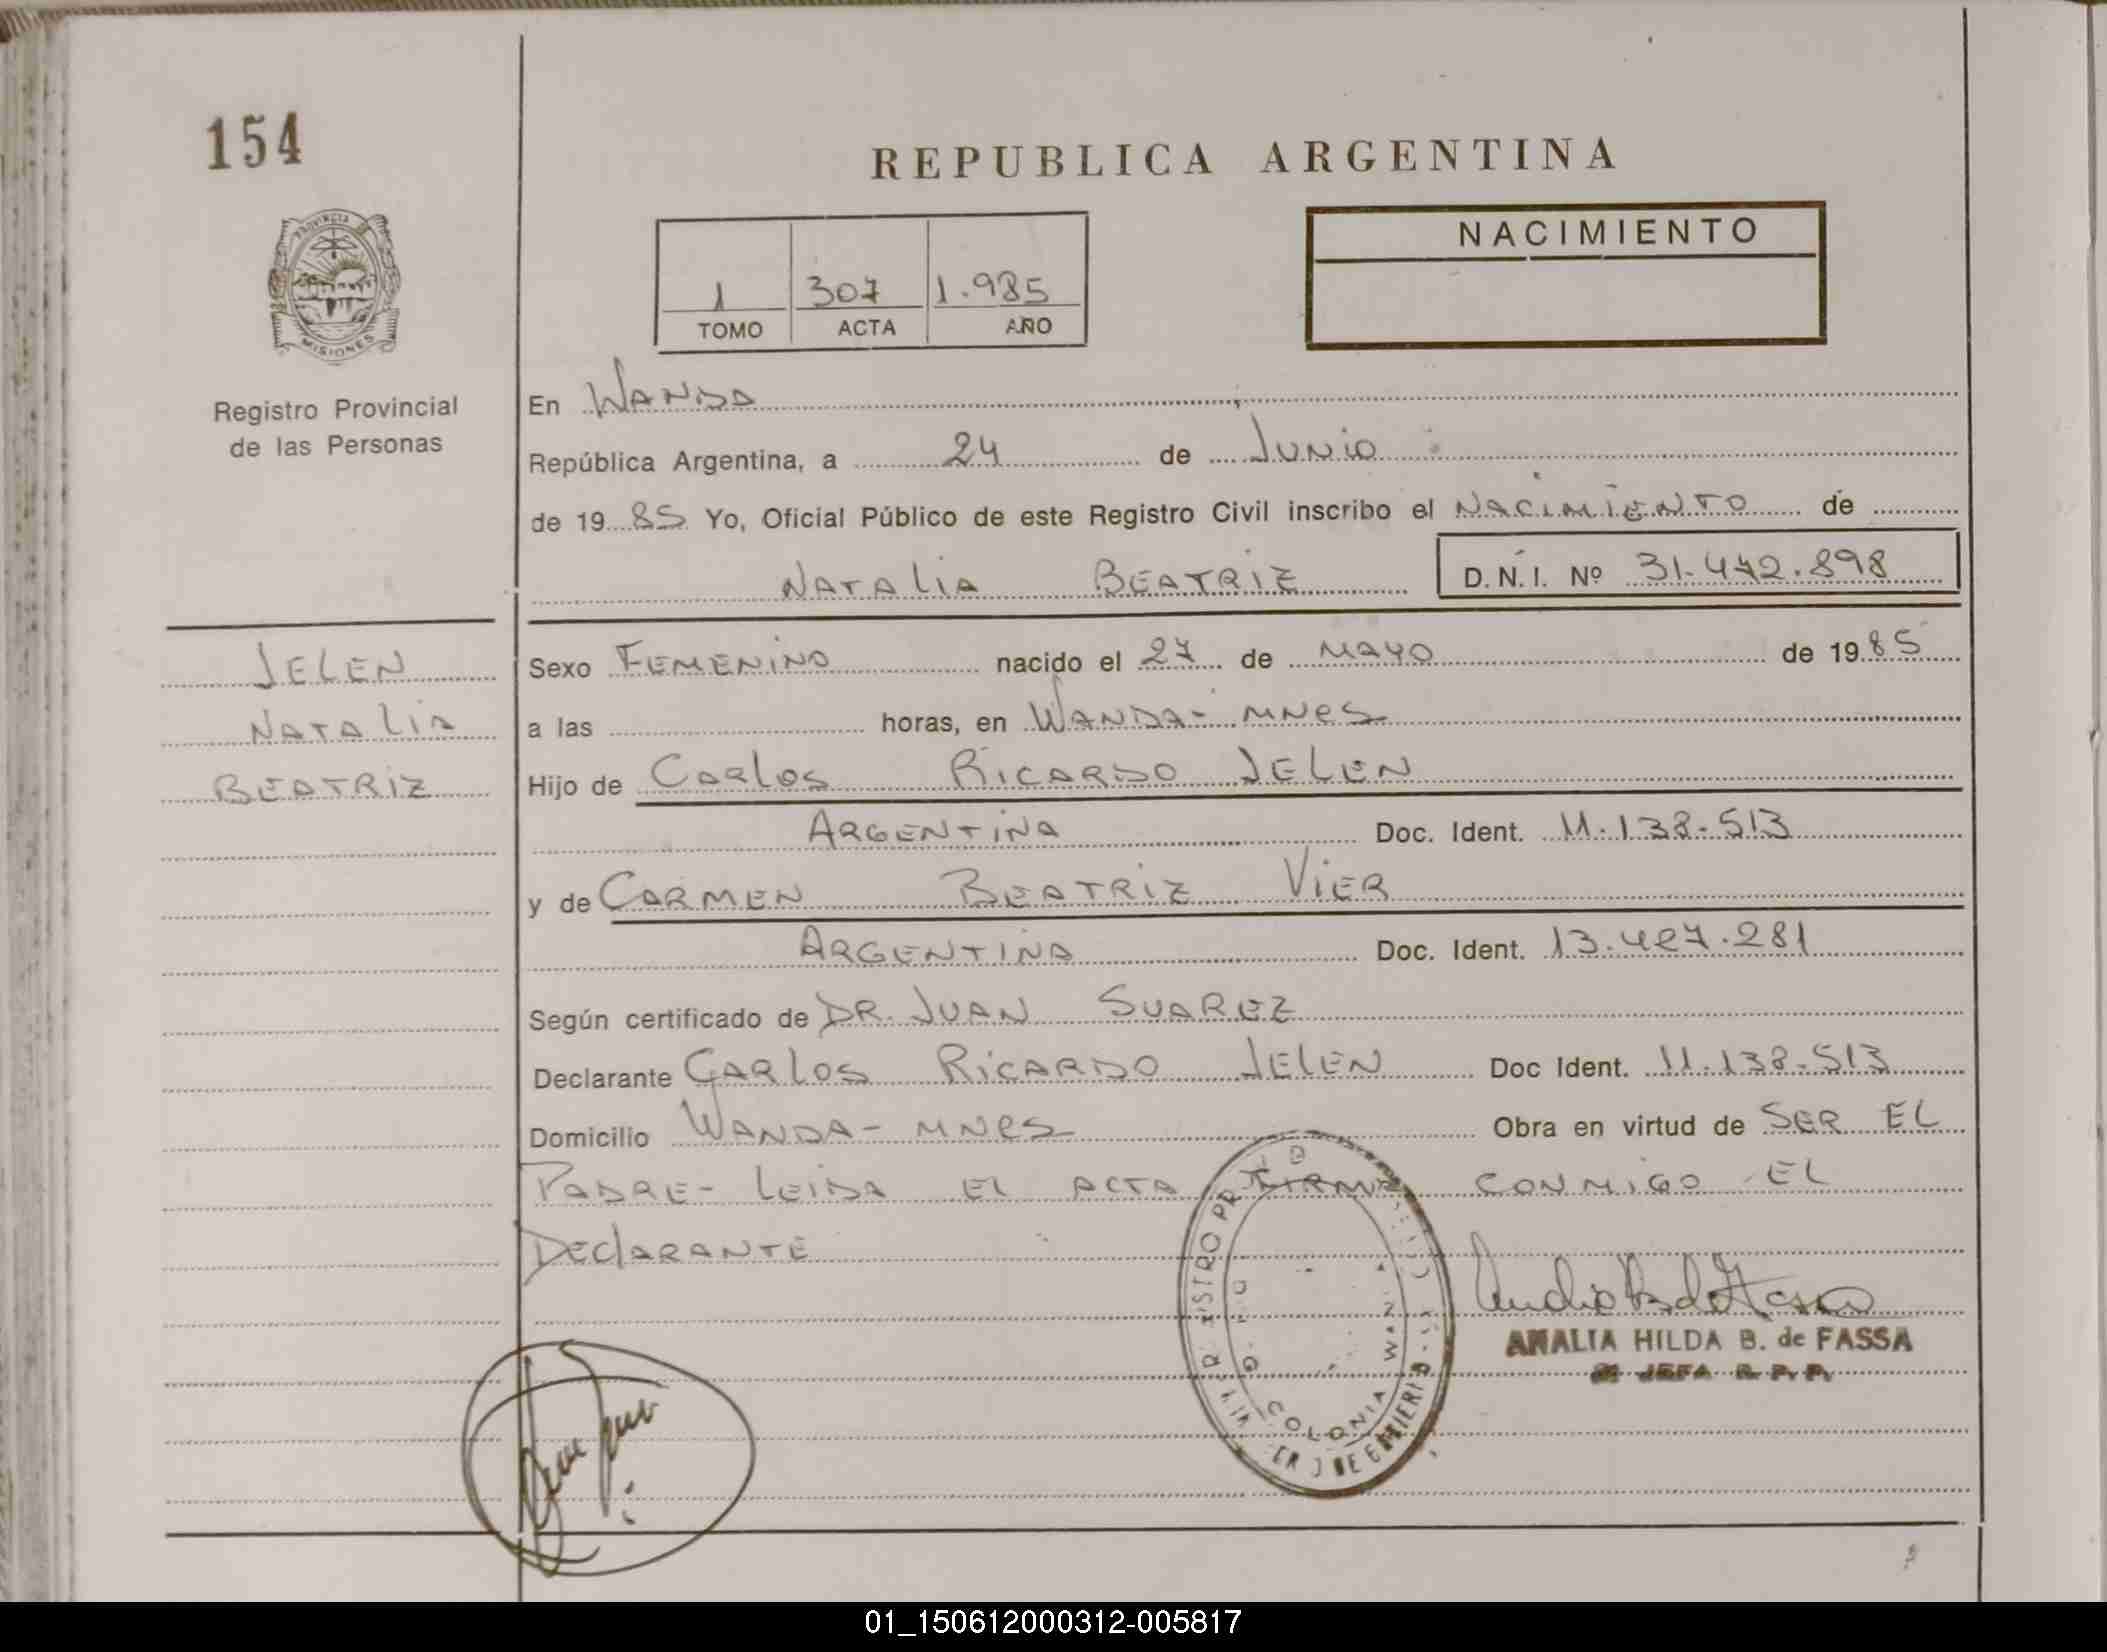 154
REPUBLICA ARGENTINA
NACIMIENTO
1 307 1.985
TOMO ACTA AÑO
PROVINCIA
MISIONES
Registro Provincial
de las Personas
En WANDA
República Argentina, a 24 de JUNIO
de 1985 Yo, Oficial Público de este Registro Civil inscribo el NACIMIENTO de
NATALIA BEATRIZ D.N.I. Nº 31.472.898
JELEN
NATALIA
BEATRIZ
Sexo FEMENINO nacido el 27 de MAYO de 1985
a las horas, en WANDA- MNES
Hijo de CARLOS RICARDO JELEN
ARGENTINA Doc. Ident. 11.138.513
y de CARMEN BEATRIZ VIER
ARGENTINA Doc. Ident. 13.427.281
Según certificado de DR. JUAN SUAREZ
Declarante CARLOS RICARDO JELEN Doc Ident. 11.138.513
Domicilio WANDA- MNES Obra en virtud de SER EL
PADRE- LEIDA EL ACTA FIRMA CONMIGO EL
DECLARANTE
COLONIA WAN
ANALIA HILDA B. de FASSA
JEFA R. P. P.
01_150612000312-005817